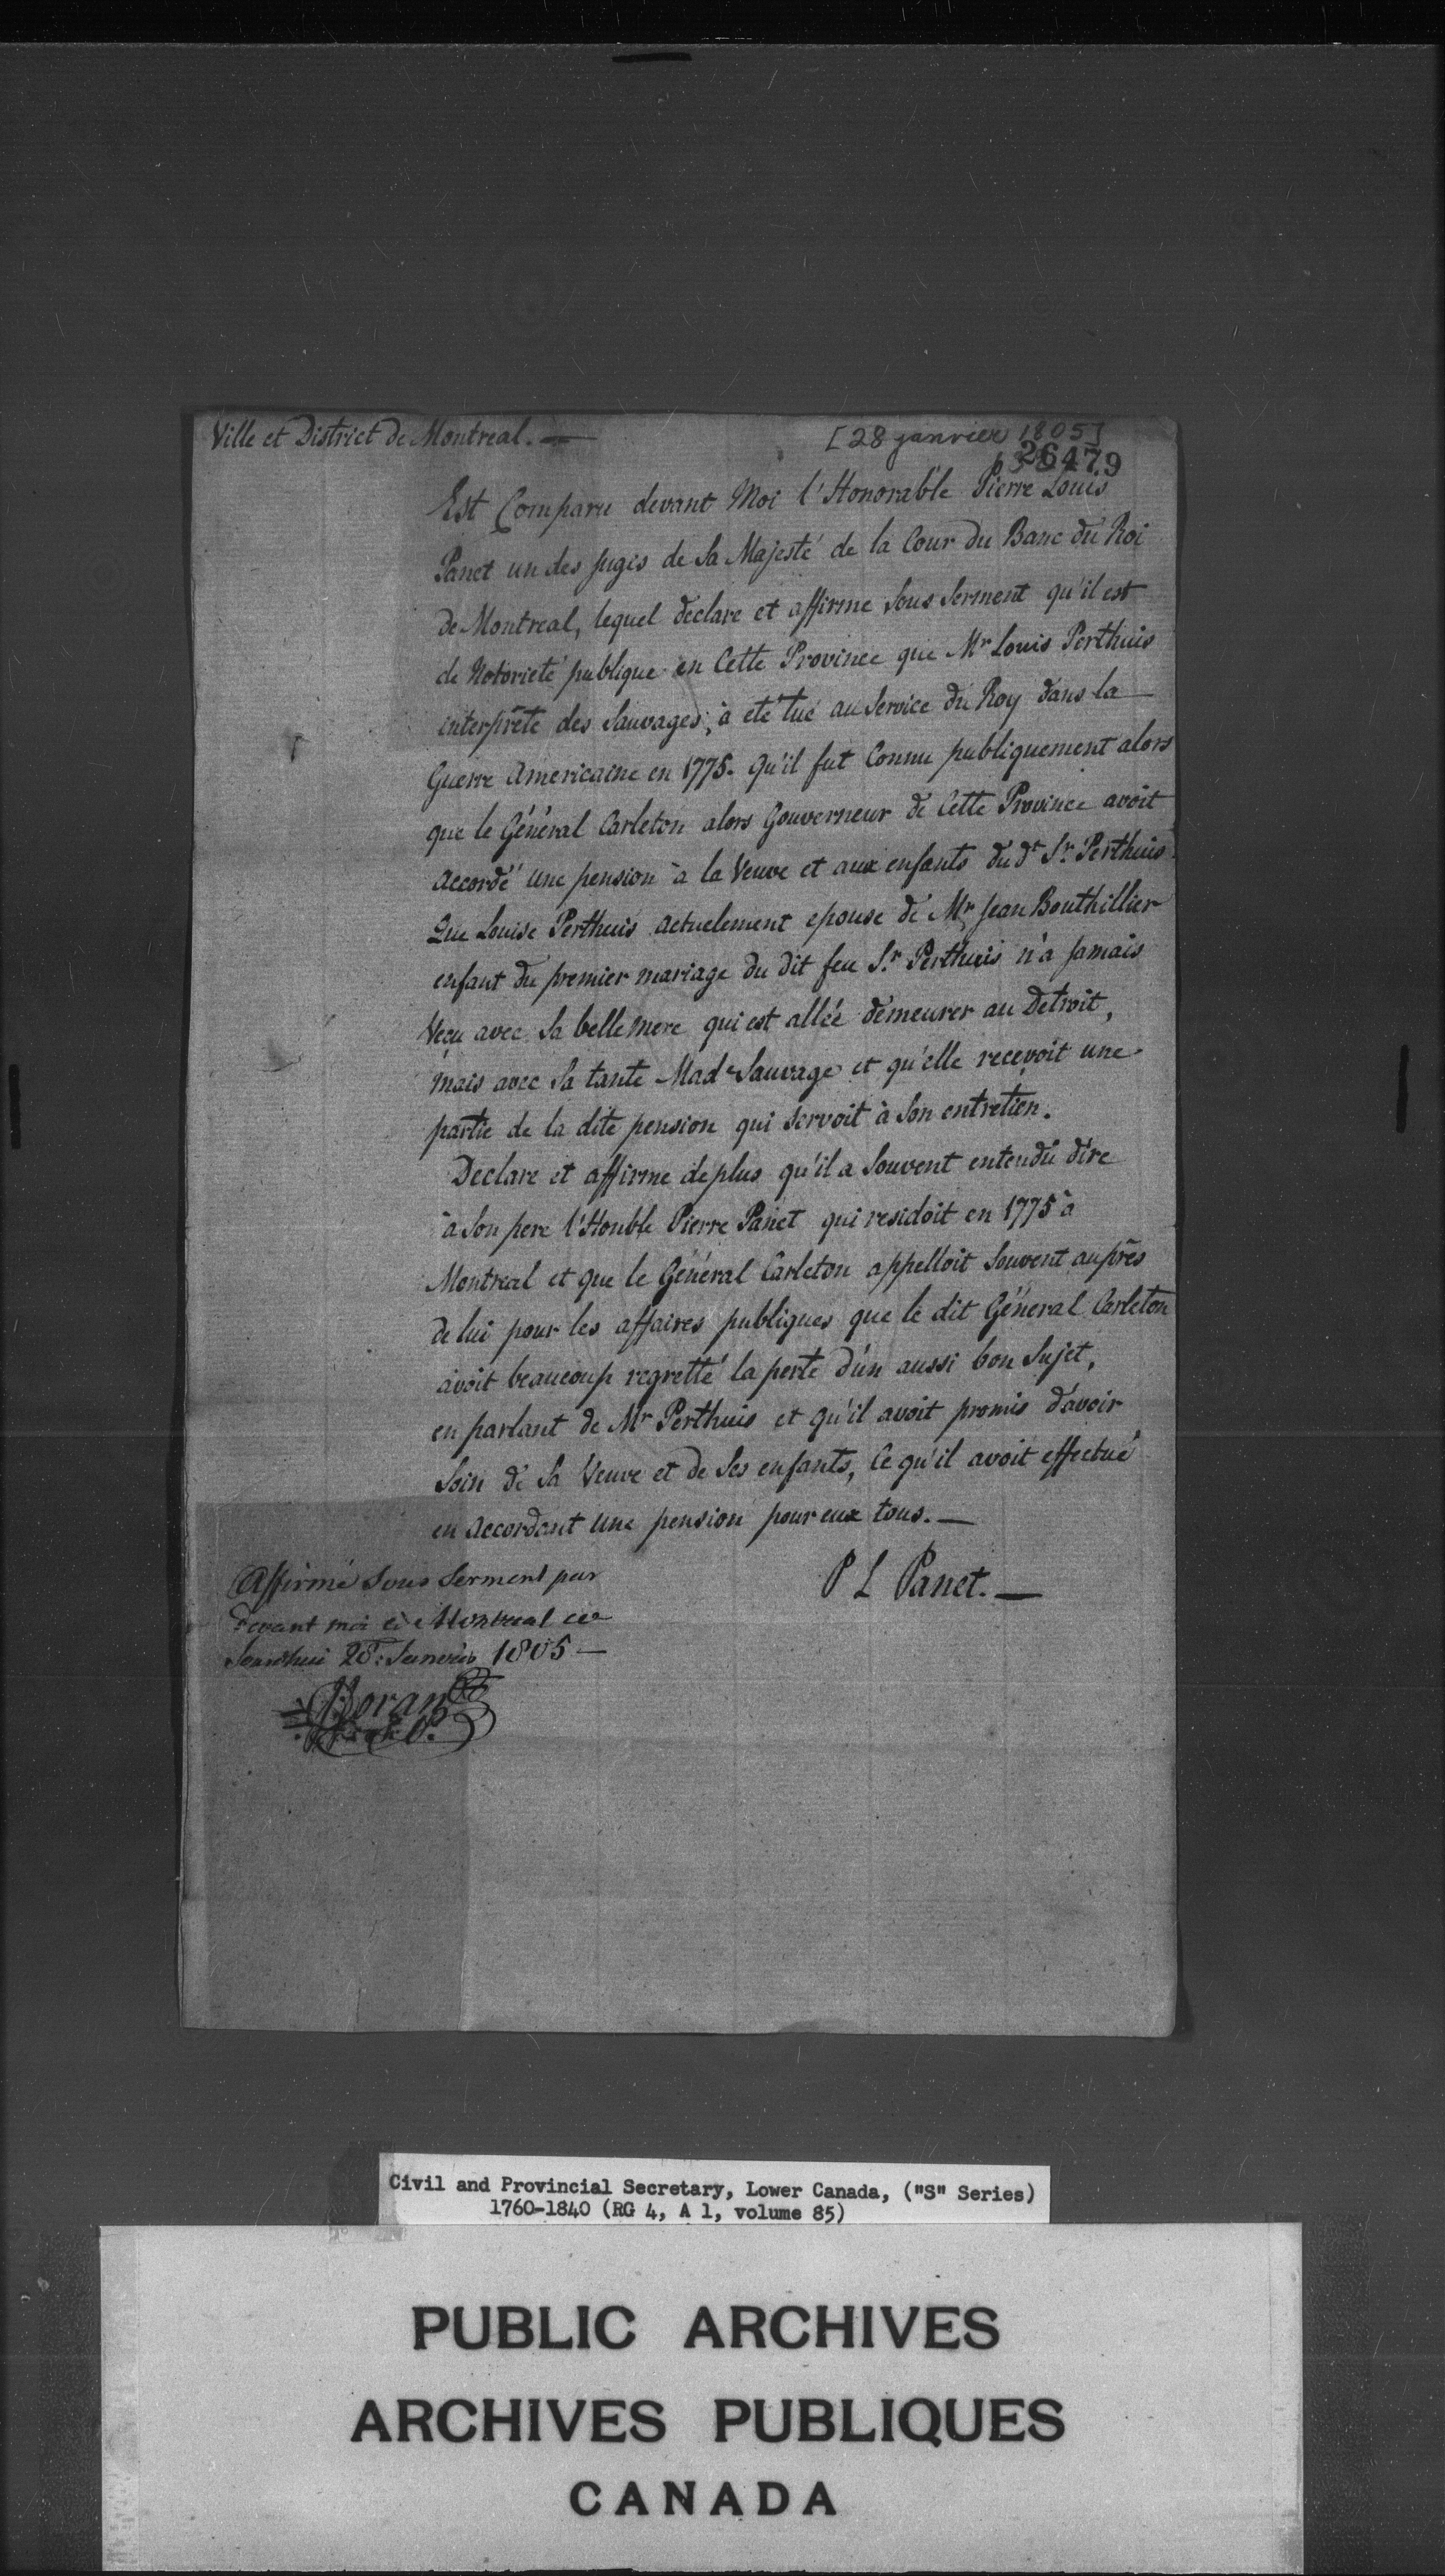 Ville et District de Montreal. —
[28 janvier 1805]
26479
Est Comparu devant Moi l'Honorable Pierre Louis
Panet un des juges de Sa Majesté de la Cour du Banc du Roi
de Montreal, lequel declare et affirme Sous Serment qu'il est
de Notorieté publique en Cette Province que Mr Louis Perthuis
interprête des Sauvages, à eté tué au Service du Roy dans la
Guerre Americaine en 1775. Qu'il fut Connu publiquement alors
que le Général Carleton alors Gouverneur de Cette Province avoit
accordé une pension à la Veuve et aux enfants du dt Sr. Perthuis.
Que Louise Perthuis actuelement epouse de Mr Jean Bouthillier
enfant du premier mariage du dit feu Sr. Perthuis n'a Jamais
Veçu avec Sa belle mere qui est allée demeurer au Detroit,
mais avec Sa tante Made Sauvage et qu'elle recevoit une
partie de la dite pension qui servoit à Son entretien.
Declare et affirme de plus qu'il a Souvent entendu dire
à Son pere l'Honble Pierre Panet qui residoit en 1775 à
Montreal et que le Général Carleton appelloit Souvent auprès
de lui pour les affaires publiques que le dit Géneral Carleton
avoit beaucoup regretté la perte d'un aussi bon Sujet,
en parlant de Mr Perthuis et qu'il avoit promis d'avoir
Soin de Sa Veuve et de Ses enfants, Ce qu'il avoit effectué
en accordant une pension pour eux tous. —
P L Panet. —
Affirmé Sous Serment par
devant moi à Montreal ce
Jourdhui 28: Janvier 1805 —
Doran
Civil and Provincial Secretary, Lower Canada, ("S" Series)
1760-1840 (RG 4, A 1, volume 85)
PUBLIC ARCHIVES
ARCHIVES PUBLIQUES
CANADA